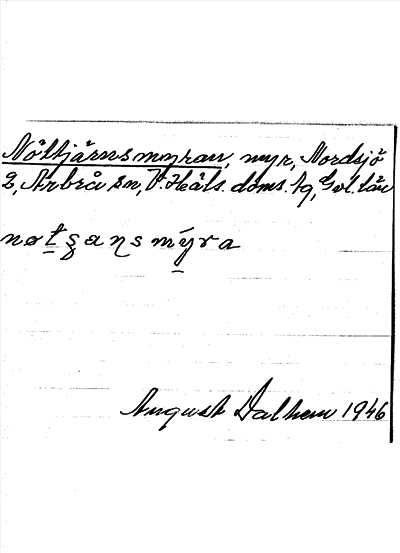 Nöltjärnsmyran, myr, Nordsjö
2, Arbrå sn, V. Häls. doms. tg, Gvl. län
nøtʂaɳsmýra
August Dalhem 1946